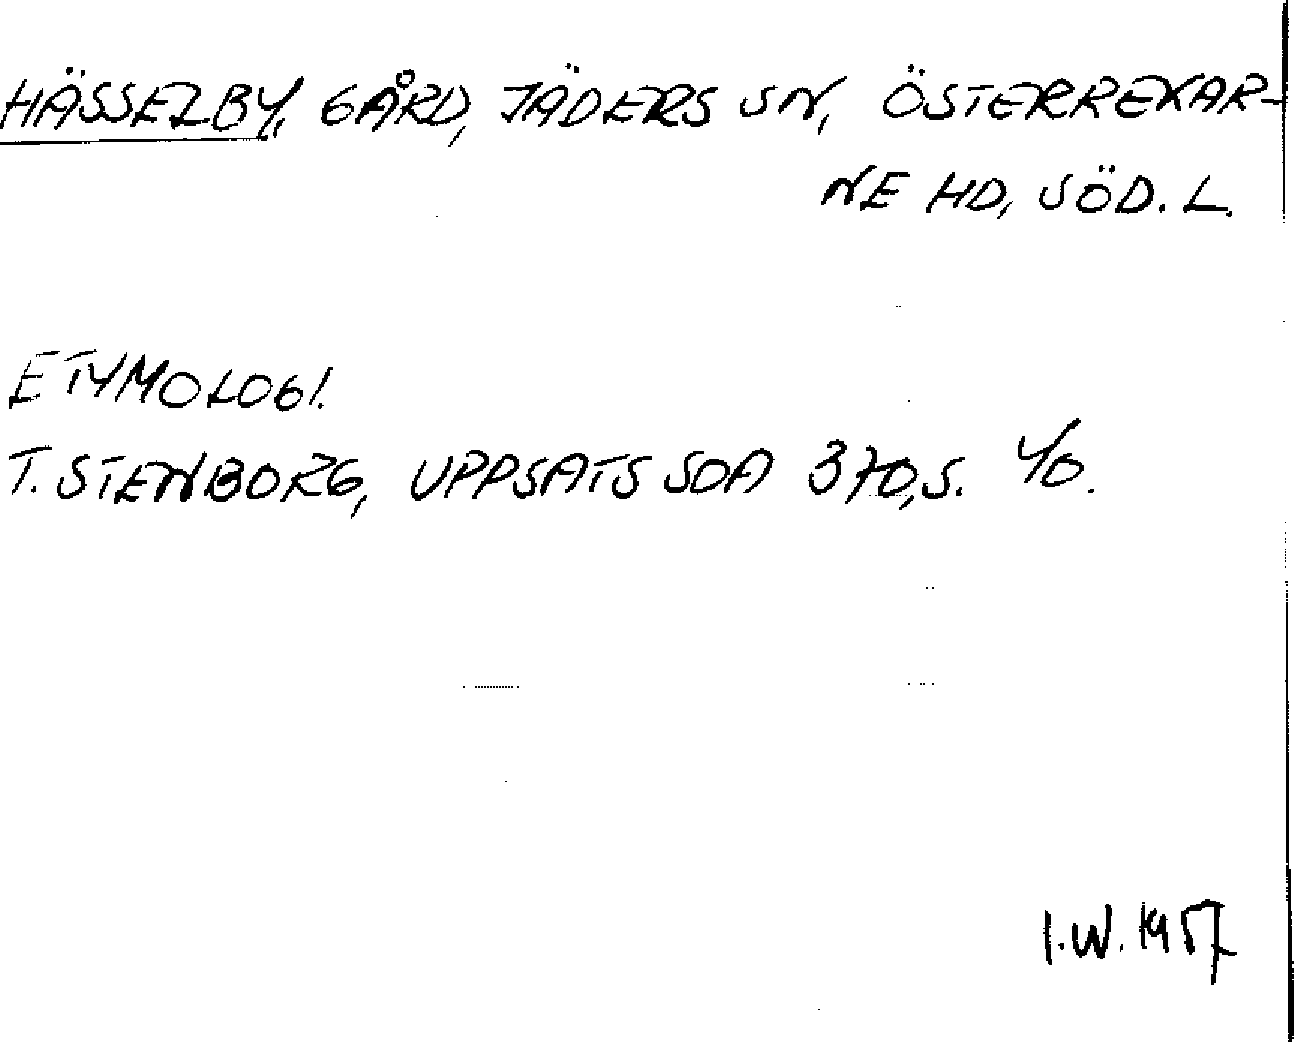 HÄSSELBY, GÅRD, JÄDERS SN, ÖSTERREKAR-
NE HD, SÖD. L.
ETYMOLOGI.
T. STENBORG, UPPSATS SOA 370, S. 40.
I.W. 1957